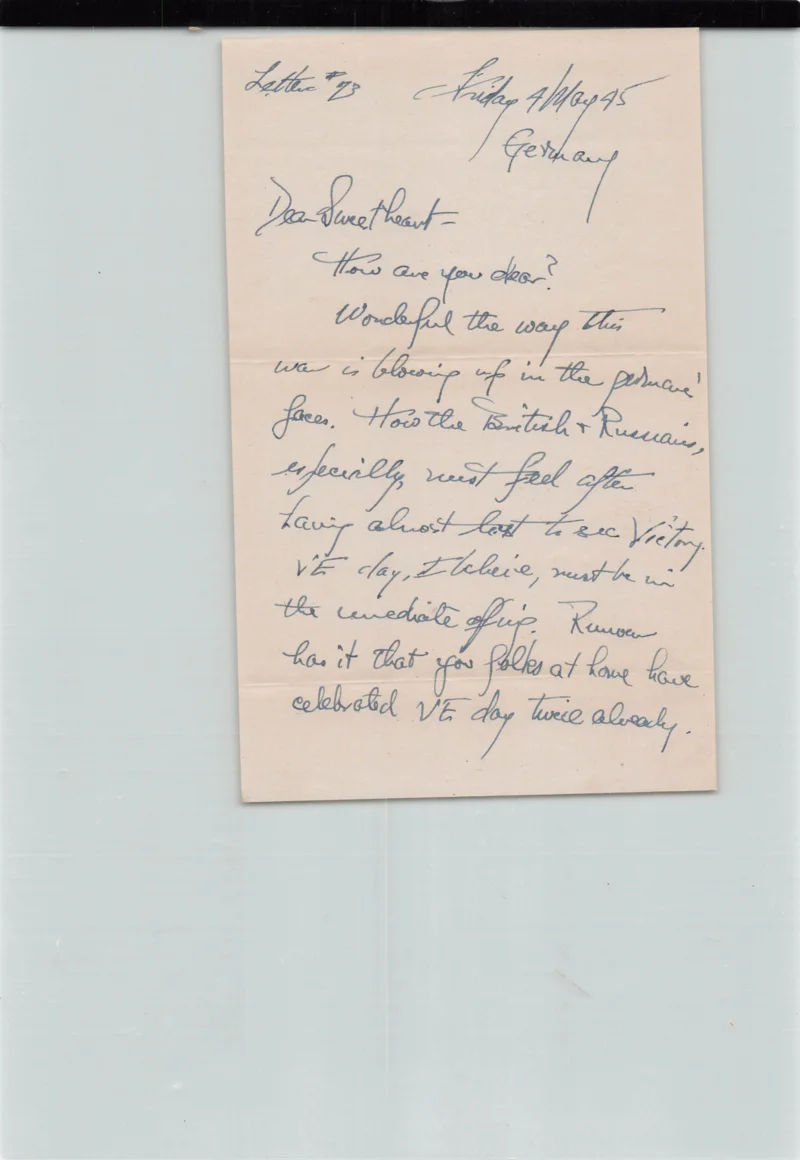 Letter #73
Friday 4 May 45
Germany
Dear Sweetheart -
How are you dear?
Wonderful the way this
war is blowing up in the germans'
faces. How the British + Russians,
especially, must feel after
having almost lost to see Victory.
VE day, I believe, must be in
the immediate offing. Rumor
has it that you folks at home have
celebrated VE day twice already.